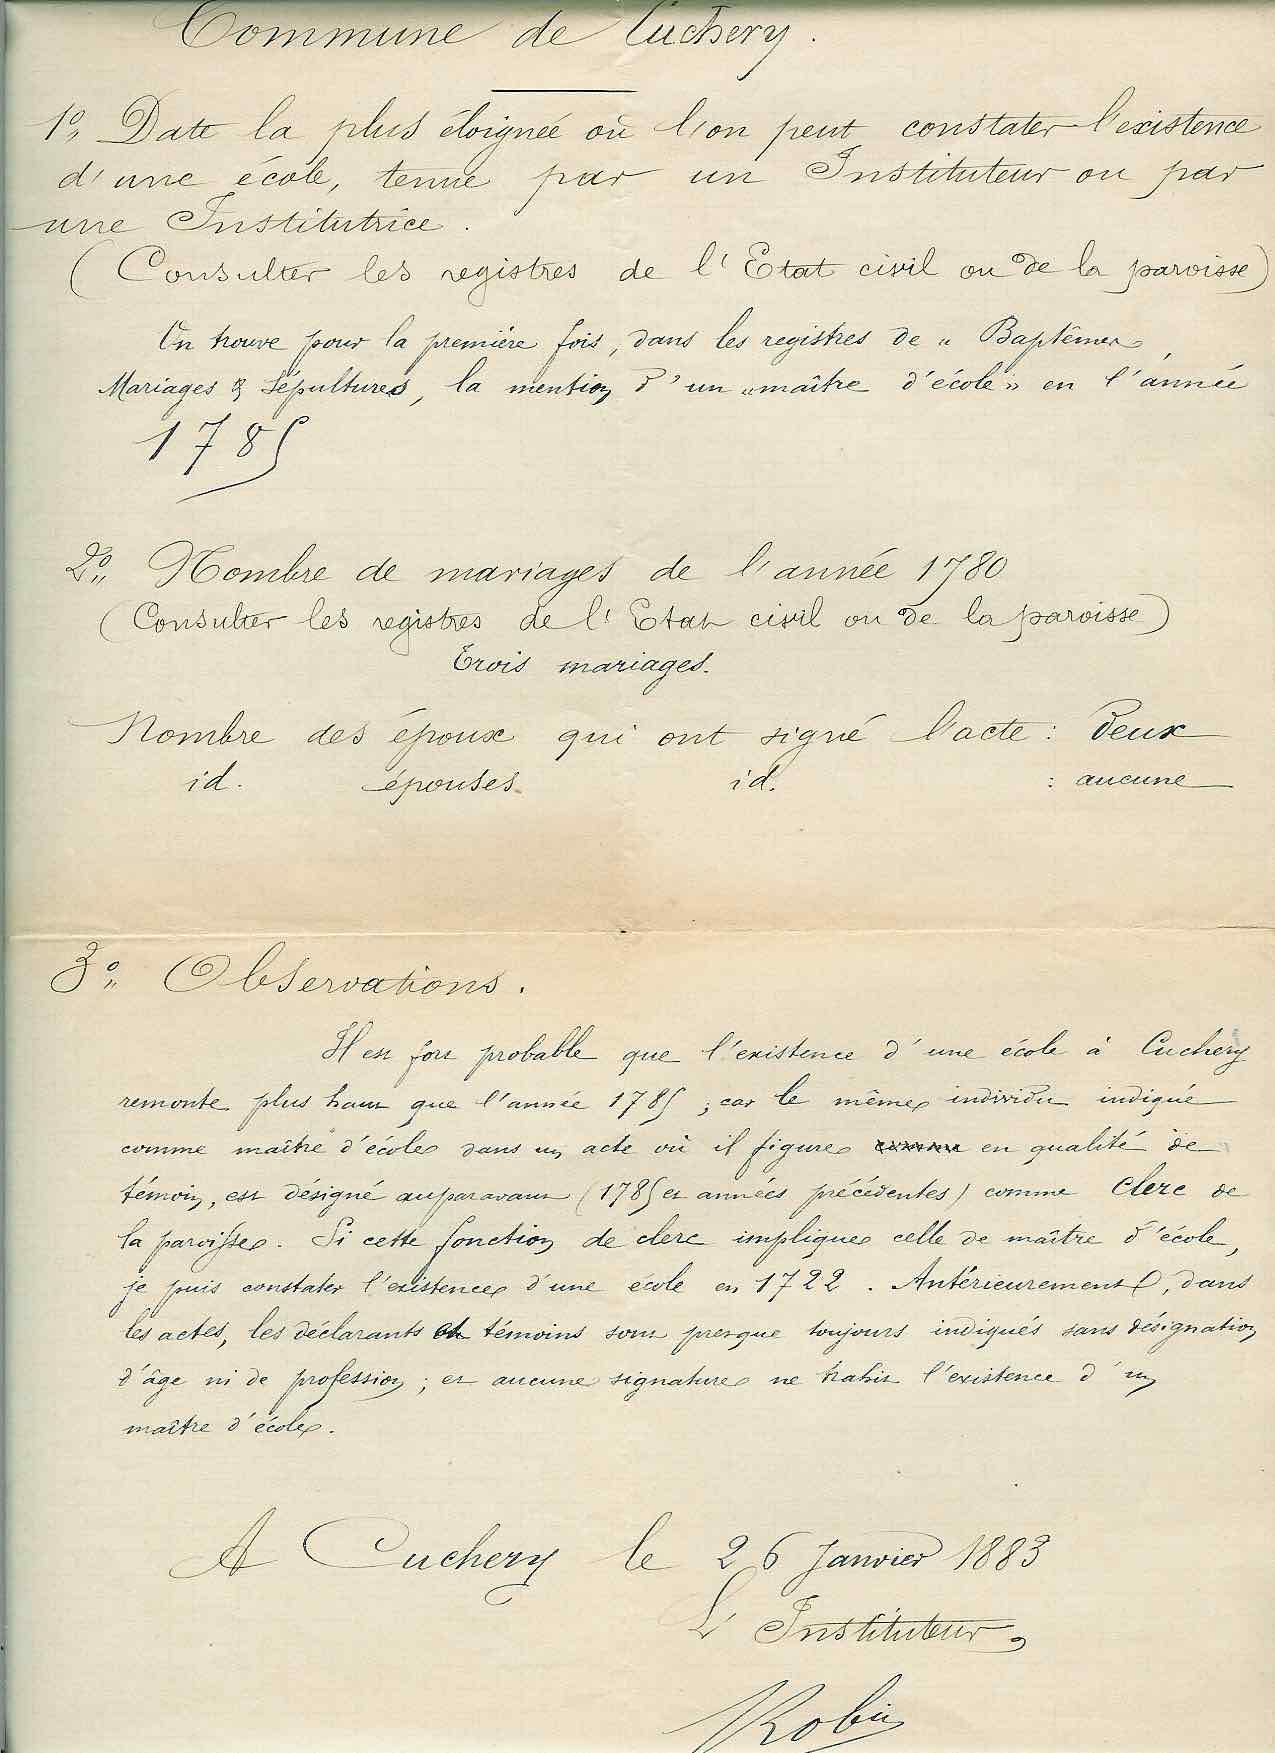 Commune de Cuchery.
1º„ Date la plus éloignée où l'on peut constater l'existence
d'une école, tenue par un Instituteur ou par
une Institutrice.
(Consulter les registres de l'Etat civil ou de la paroisse)
On trouve pour la première fois, dans les registres de „ Baptêmes,
Mariages & Sépultures, la mention d'un „maître d'école" en l'année
1785
2º„ Nombre de mariages de l'année 1780
(Consulter les registres de l'Etat civil ou de la paroisse)
Trois mariages.
Nombre des époux qui ont signé l'acte : deux
id. épouses id. : aucune
3º„ Observations.
Il est fort probable que l'existence d'une école à Cuchery
remonte plus haut que l'année 1785 ; car le même individu indiqué
comme maître d'école dans un acte où il figure en qualité de
témoin, est désigné auparavant (1785 et années précédentes) comme Clerc de
la paroisse. Si cette fonction de clerc implique celle de maître d'école,
je puis constater l'existence d'une école en 1722. Antérieurement, dans
les actes, les déclarants et témoins sont presque toujours indiqués sans désignation
d'âge ni de profession ; et aucune signature ne trahit l'existence d'un
maître d'école.
A Cuchery le 26 Janvier 1883
L'Instituteur,
Robin